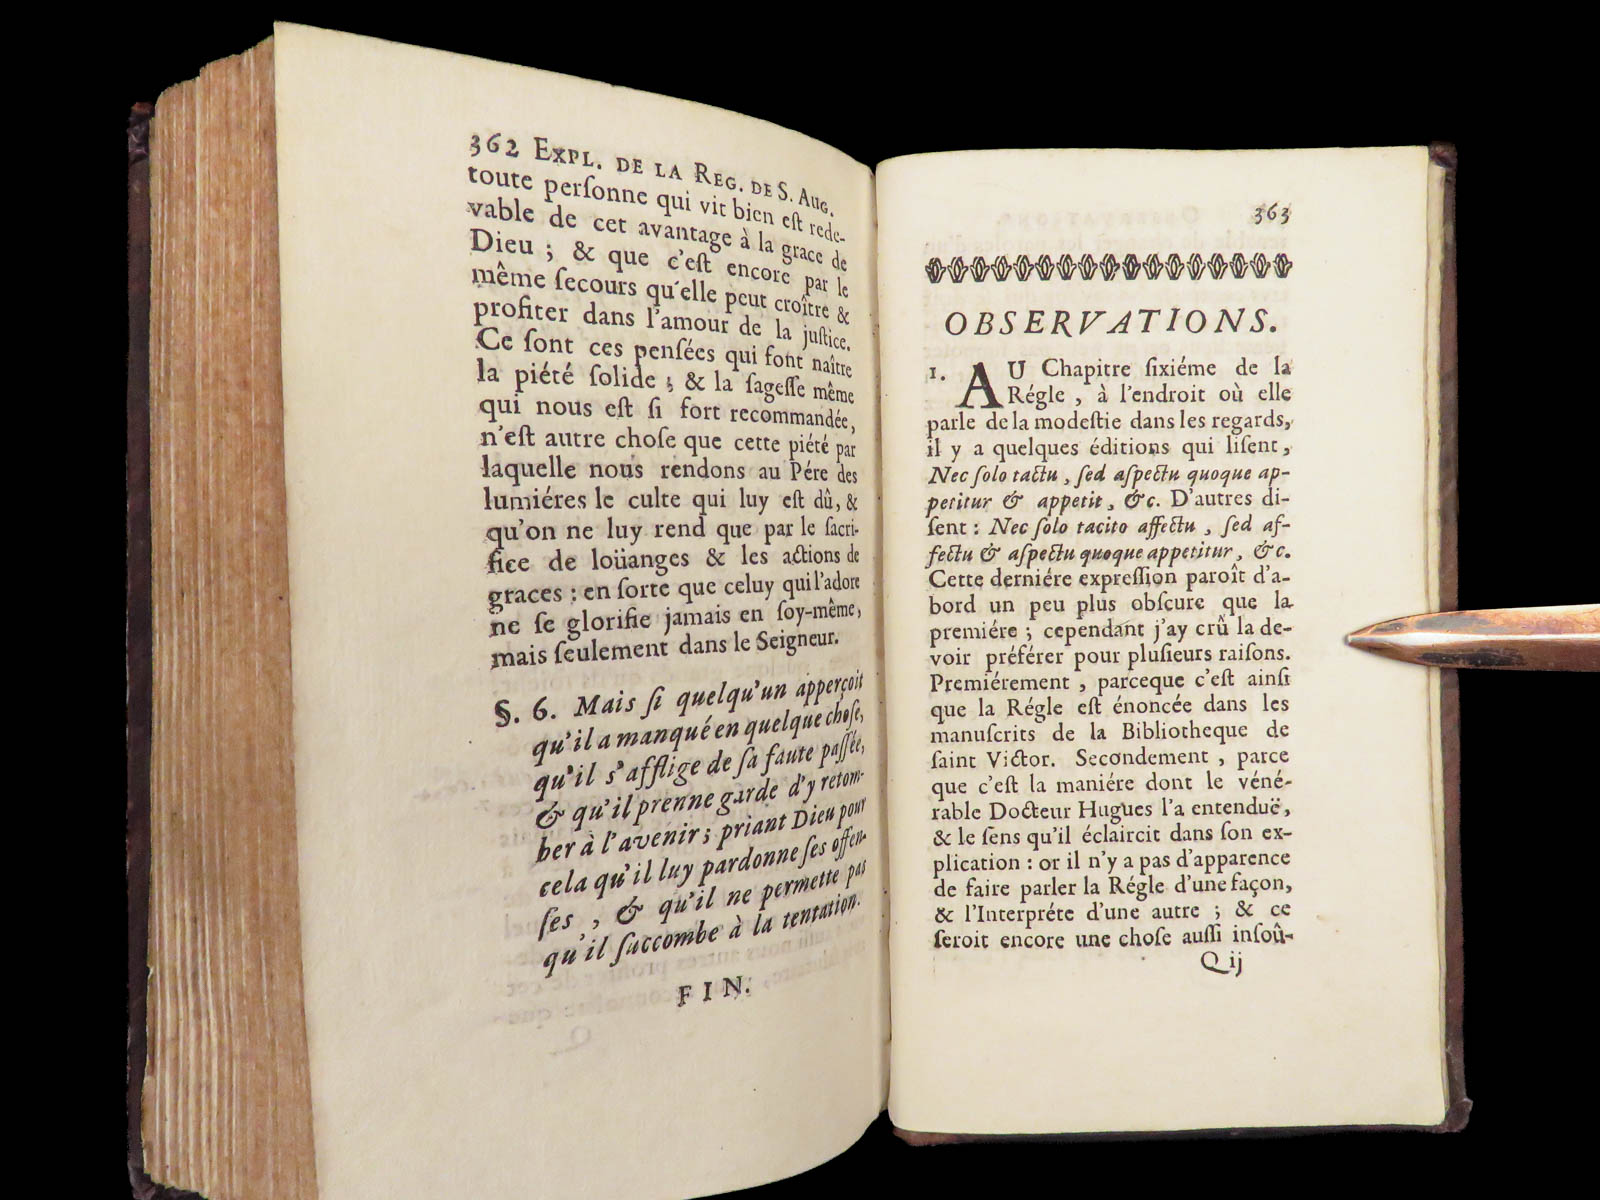 362 EXPL. DE LA REG. DE S. AUG.
toute perſonne qui vit bien eſt rede-
vable de cet avantage à la grace de
Dieu ; & que c'eſt encore par le
même ſecours qu'elle peut croître &
profiter dans l'amour de la juſtice.
Ce ſont ces penſées qui font naître
la piété ſolide ; & la ſageſſe même
qui nous eſt ſi fort recommandée,
n'eſt autre choſe que cette piété par
laquelle nous rendons au Pére des
lumiéres le culte qui luy eſt dû, &
qu'on ne luy rend que par le ſacri-
fice de loüanges & les actions de
graces : en ſorte que celuy qui l'adore
ne ſe glorifie jamais en ſoy-même,
mais ſeulement dans le Seigneur.
§. 6. Mais ſi quelqu'un apperçoit
qu'il a manqué en quelque choſe,
qu'il s'afflige de ſa faute paſſée,
& qu'il prenne garde d'y retom-
ber à l'avenir ; priant Dieu pour
cela qu'il luy pardonne ſes offen-
ſes , & qu'il ne permette pas
qu'il ſuccombe à la tentation.
FIN.
363
OBSERVATIONS.
1. AU Chapitre ſixiéme de la
Régle , à l'endroit où elle
parle de la modeſtie dans les regards,
il y a quelques éditions qui liſent ,
Nec ſolo tactu , ſed aſpectu quoque ap-
petitur & appetit , &c. D'autres di-
ſent : Nec ſolo tacito affectu , ſed af-
fectu & aſpectu quoque appetitur , &c.
Cette derniére expreſſion paroît d'a-
bord un peu plus obſcure que la
premiére ; cependant j'ay crû la de-
voir préférer pour pluſieurs raiſons.
Premiérement , parceque c'eſt ainſi
que la Régle eſt énoncée dans les
manuſcrits de la Bibliotheque de
ſaint Victor. Secondement , parce
que c'eſt la maniére dont le véné-
rable Docteur Hugues l'a entenduë,
& le ſens qu'il éclaircit dans ſon ex-
plication : or il n'y a pas d'apparence
de faire parler la Régle d'une façon,
& l'Interpréte d'une autre ; & ce
ſeroit encore une choſe auſſi inſoû-
Q ij